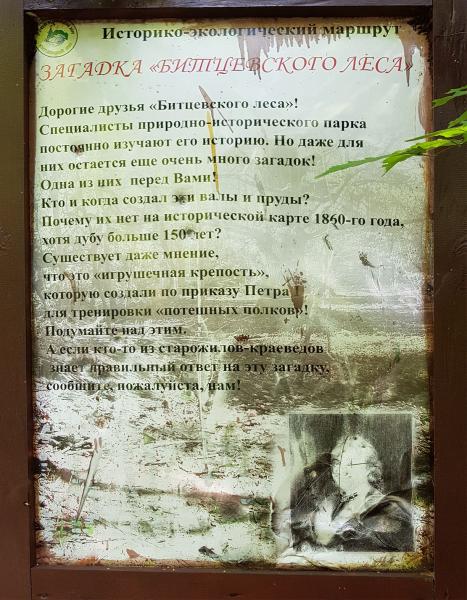 Историко-экологический маршрут
ЗАГАДКА «БИТЦЕВСКОГО ЛЕСА»
Дорогие друзья «Битцевского леса»!
Специалисты природно-исторического парка
постоянно изучают его историю. Но даже для
них остается еще очень много загадок!
Одна из них перед Вами!
Кто и когда создал эти валы и пруды?
Почему их нет на исторической карте 1860-го года,
хотя дубу больше 150 лет?
Существует даже мнение,
что это «игрушечная крепость»,
которую создали по приказу Петра
для тренировки «потешных полков»!
Подумайте над этим.
А если кто-то из старожилов-краеведов
знает правильный ответ на эту загадку,
сообщите, пожалуйста, нам!